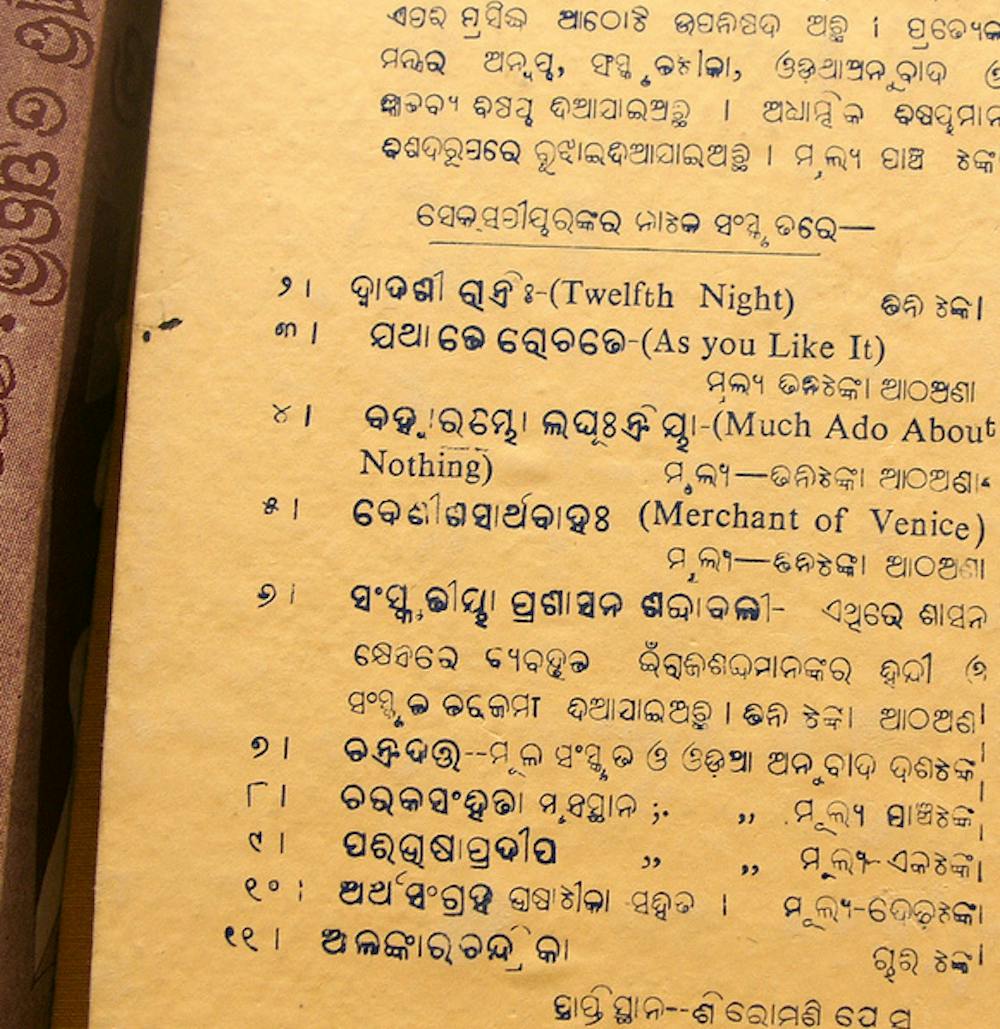 ଏପରି ପ୍ରସିଦ୍ଧ ଆଠୋଟି ଉପନିଷଦ ଅଛି । ପ୍ରତ୍ୟେକ
ମନ୍ତ୍ରର ଅନ୍ୱୟ, ସଂସ୍କୃତଟୀକା, ଓଡ଼ିଆଅନୁବାଦ ଓ
ଜ୍ଞାତବ୍ୟ ବିଷୟ ଦିଆଯାଇଅଛି । ଅଧ୍ୟାତ୍ମିକ ବିଷୟମାନ
ବିଶଦରୂପରେ ବୁଝାଇଦିଆଯାଇଅଛି । ମୂଲ୍ୟ ପାଞ୍ଚ ଟଙ୍କା
ସେକ୍ସପୀୟରଙ୍କର ନାଟକ ସଂସ୍କୃତରେ—
୨। ଦ୍ୱାଦଶୀ ରାତ୍ରିଃ-(Twelfth Night) ତିନି ଟଙ୍କା।
୩। ଯଥା ତେ ରୋଚତେ-(As you Like It)
ମୂଲ୍ୟ ତିନିଟଙ୍କା ଆଠଅଣା
୪। ବହ୍ୱାରମ୍ଭୋ ଲଘୁଃକ୍ରିୟା-(Much Ado About
Nothing) ମୂଲ୍ୟ—ତିନିଟଙ୍କା ଆଠଅଣା
୫। ବେଣୀଶସାର୍ଥବାହଃ (Merchant of Venice)
ମୂଲ୍ୟ—ତିନିଟଙ୍କା ଆଠଅଣା
୬। ସଂସ୍କୃତୀୟା ପ୍ରଶାସନ ଶବ୍ଦାବଳୀ- ଏଥିରେ ଶାସନ
କ୍ଷେତ୍ରରେ ବ୍ୟବହୃତ ଇଁରାଜିଶବ୍ଦମାନଙ୍କର ହିନ୍ଦୀ ଓ
ସଂସ୍କୃତ ତର୍ଜମା ଦିଆଯାଇଅଛି । ତିନି ଟଙ୍କା ଆଠଅଣା
୭। ଚକ୍ରଦତ୍ତ--ମୂଳ ସଂସ୍କୃତ ଓ ଓଡ଼ିଆ ଅନୁବାଦ ଦଶଟଙ୍କା
୮। ଚରକସଂହିତା ସୂତ୍ରସ୍ଥାନ ,, ,, ମୂଲ୍ୟ ପାଞ୍ଚଟଙ୍କା
୯। ପରିଭାଷାପ୍ରଦୀପ ,, ,, ମୂଲ୍ୟ-ଏକଟଙ୍କା
୧୦। ଅର୍ଥସଂଗ୍ରହ ଭାଷାଟୀକା ସହିତ । ମୂଲ୍ୟ-ଦେଢ଼ଟଙ୍କା
୧୧। ଅଳଙ୍କାରଚନ୍ଦ୍ରିକା ଚାରି ଟଙ୍କା
ପ୍ରାପ୍ତିସ୍ଥାନ--ଶିରୋମଣି ପ୍ରେସ